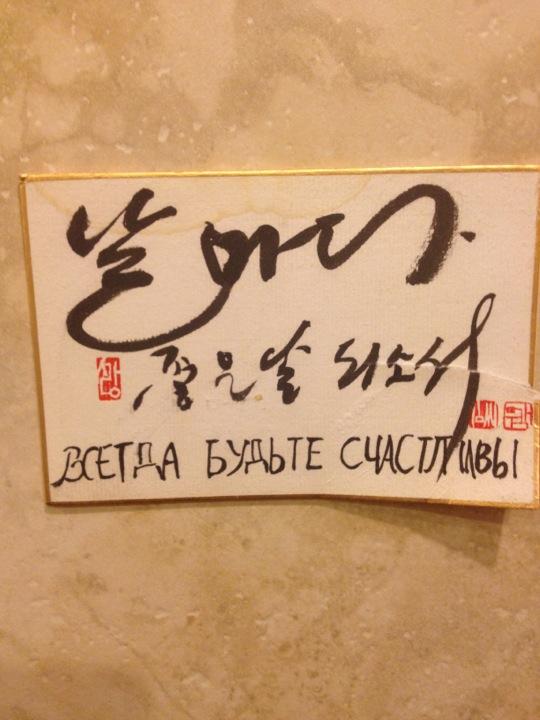 날마다
좋은날 되소서
ВСЕГДА БУДЬТЕ СЧАСТЛИВЫ